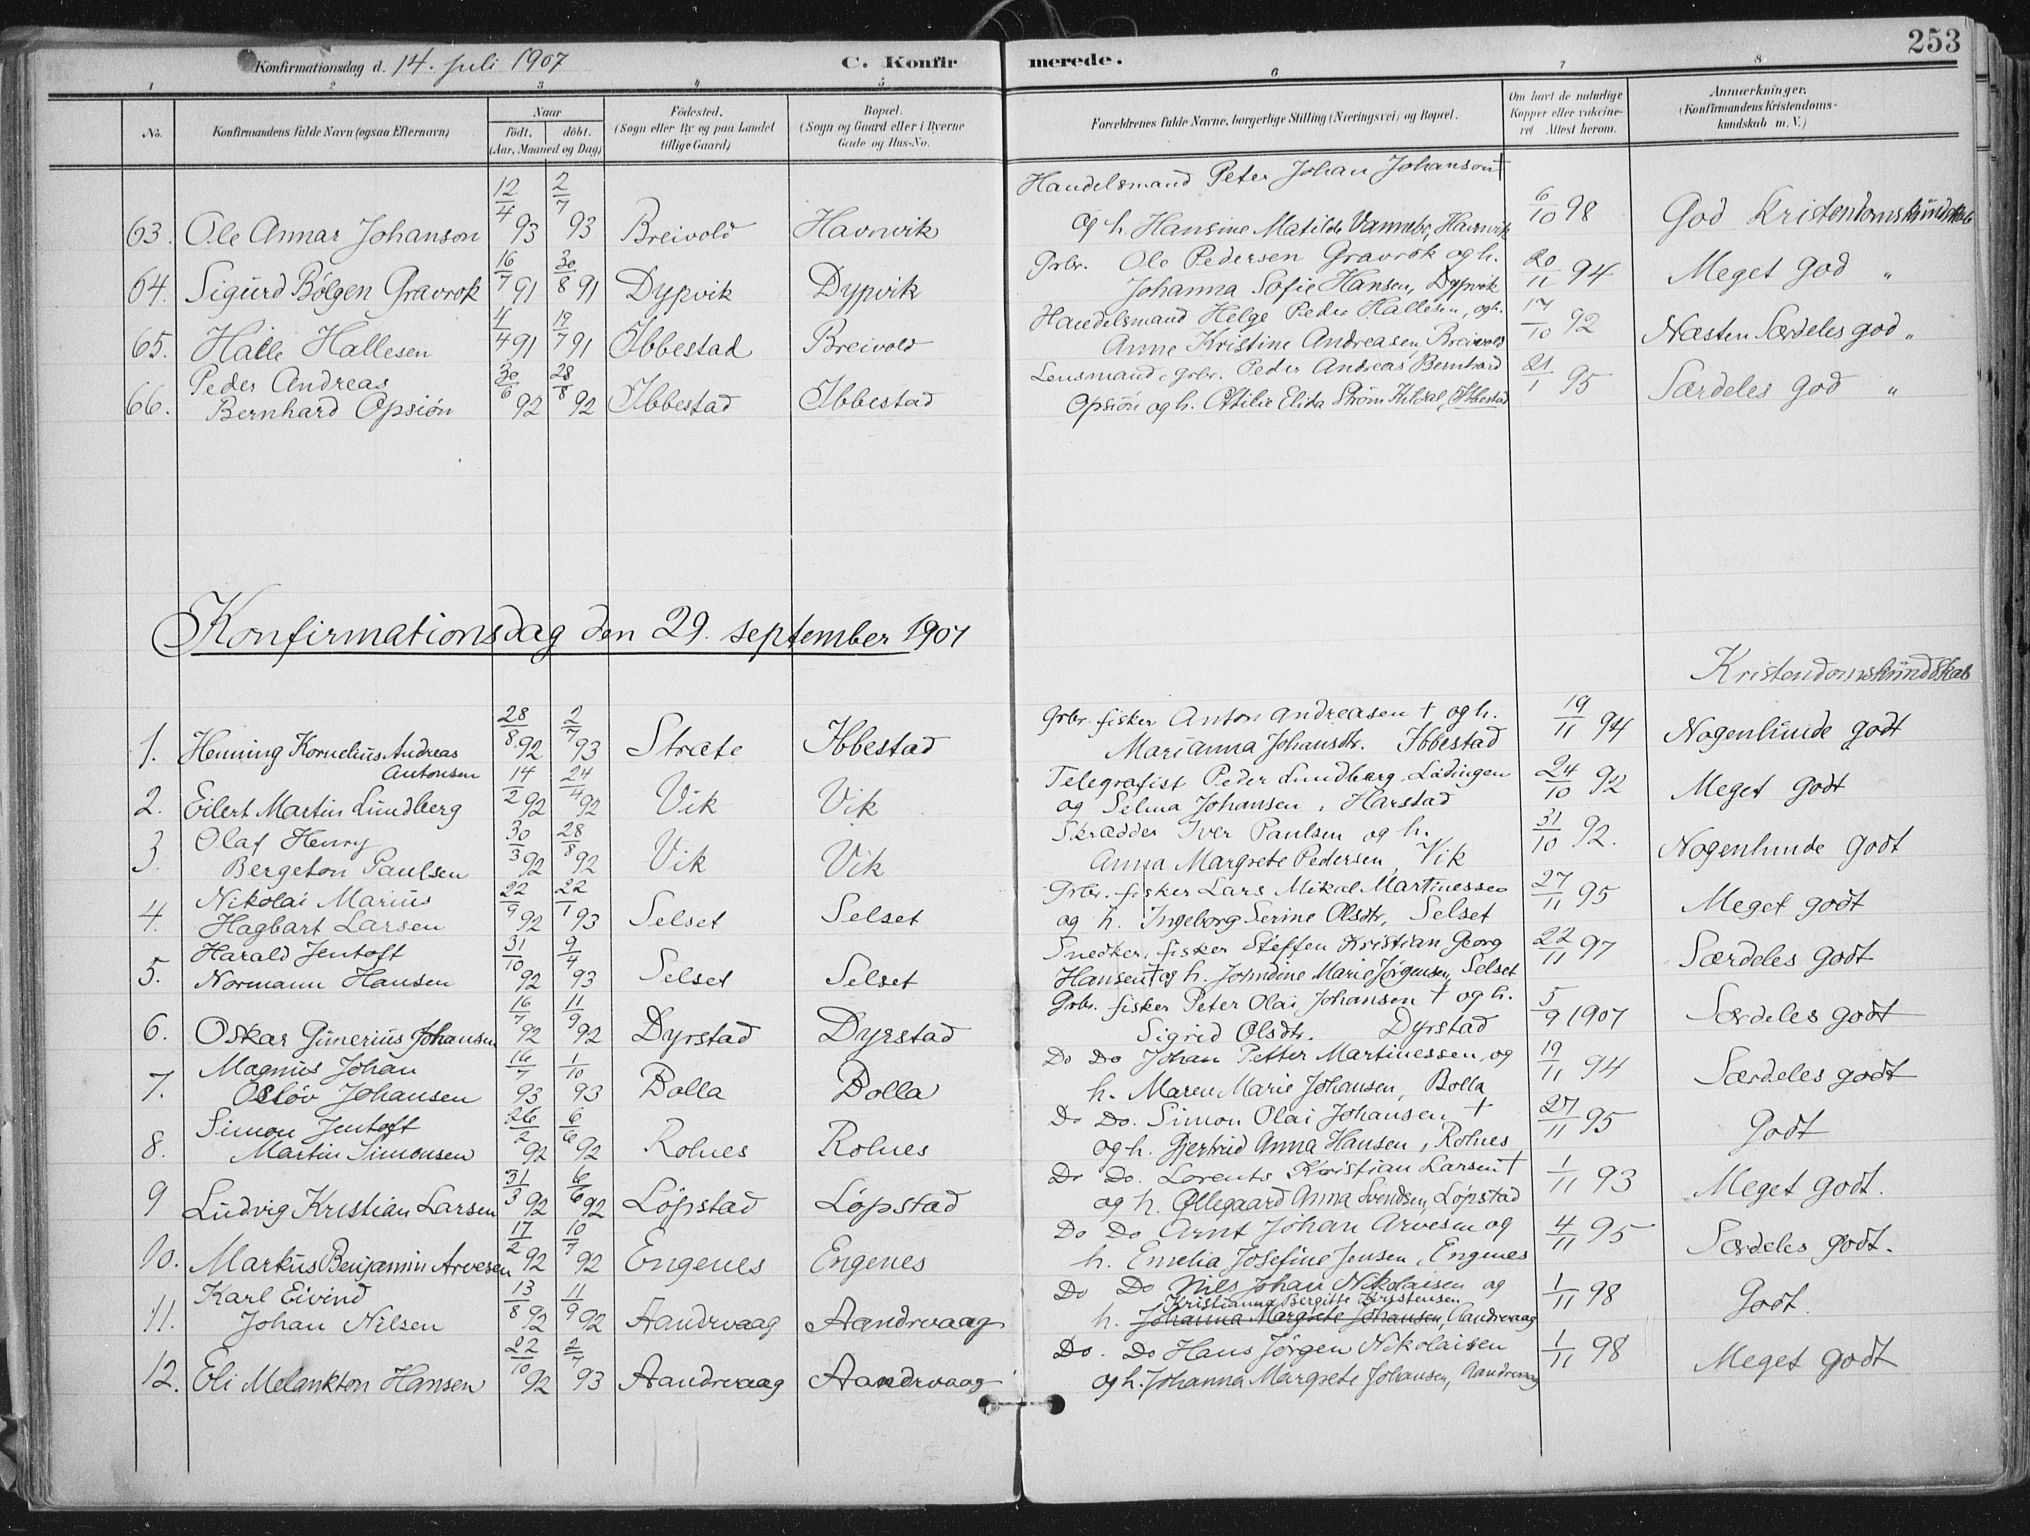 253
Konfirmationsdag d. 14. Juli 1907 C. Konfirmerede.
1 2 3 4 5 6 7 8
No. Konfirmandens fulde Navn (ogsaa Efternavn) Naar født, døbt. (Aar, Maaned og Dag) Fødested. (Sogn eller By og paa Landet tillige Gaard) Bopæl. (Sogn og Gaard eller i Byerne Gade og Hus-No. Forældrenes fulde Navne, borgerlige Stilling (Næringsvei) og Bopæl. Om havt de naturlige Kopper eller vaccineret. Attest herom. Anmærkninger. (Konfirmandens Kristendomskundskab m. V.)
Handelsmand Peter Johan Johanson †
63. Ole Annar Johanson 12/4 93 2/7 93 Breivold Havnvik og h. Hansine Matilde Vannebo, Havnvik 6/10 98 God Kristendomskundskab
Grbr. Ole Pedersen Gravrok og h.
64. Sigurd Bölgen Gravrok 16/7 91 30/8 91 Dypvik Dypvik Johanna Sofie Hansen, Dypvik 20/11 94 Meget God "
Handelsmand Helge Peder Hallesen, og h.
65. Halle Hallesen 4/4 91 19/7 91 Ibbestad Breivold Anne Kristine Andreasen Breivold 17/10 92 Næsten Særdeles god "
Peder Andreas Lensmand, Grbr. Peder Andreas Bernhard
66. Bernhard Opsiön 30/6 92 28/8 92 Ibbestad Ibbestad Opsiön og h. Otilie Elida Ström Kildal, Ibbestad 21/1 95 Særdeles God "
Konfirmationsdag den 29. september 1907
Kristendomskundskab
Grbr. fisker Anton Andreasen † og h.
1. Henning Kornelius Andreas 28/8 92 2/7 93 Stræte Ibbestad Marianna Johansdtr. Ibbestad 19/11 94 Nogenlunde godt
Antonsen Telegrafist Peder Lundberg, Lödingen
2. Eilert Martin Lundberg 14/2 92 24/4 92 Vik Vik og Selma Johansen, Harstad 24/10 92 Meget godt
Olaf Henry Skrædder Iver Paulsen og h.
3. Bergeton Paulsen 30/3 92 28/8 92 Vik Vik Anna Margrete Pedersen, Vik 31/10 92. Nogenlunde godt
Nikolai Marius Grbr. fisker Lars Mikal Martinessen
4. Hagbart Larsen 22/9 92 22/1 93 Selset Selset og h. Ingeborg Serine Olsdtr, Selset 27/11 95 Meget godt
Harald Jentoft Snedker, fisker Steffen Kristian Georg
5. Normann Hansen 31/10 92 9/4 93 Selset Selset Hansen † og h. Jorndine Marie Jörgensen, Selset 22/11 97 Særdeles godt
Grbr. fisker Peter Olai Johansen † og h.
6. Oskar Gunerius Johansen 16/7 92 11/9 92 Dyrstad Dyrstad Sigrid Olsdtr. Dyrstad 5/9 1907 Særdeles godt
Magnus Johan Do Do Johan Petter Martinessen, og
7. Oslöv Johansen 16/7 93 1/10 93 Bolla Bolla h. Maren Marie Johansen, Bolla 19/11 94 Særdeles godt
Simon Jentoft Do Do. Simon Olai Johansen †
8. Martin Simonsen 26/2 92 6/6 92 Rolnes Rolnes og h. Gjertrud Anna Hansen, Rolnes 27/11 95 Godt
Do Do. Lorents Kristian Larsen †
9 Ludvig Kristian Larsen 31/3 92 6/6 92 Löpstad Löpstad og h. Ollegaard Anna Svendsen, Löpstad 1/11 93 Meget godt.
Do Do Arnt Johan Arvesen og
10. Markus Benjamin Arvesen 17/2 92 10/7 92 Engenes Engenes h. Emelia Josefine Jensen, Engenes 4/11 95 Særdeles godt.
Karl Eivind Do Do Nils Johan Nikolaisen og
Kristianna Bergitte Kristensen
11. Johan Nilsen 13/8 92 11/9 92 Aandrvaag Aandrvaag h. Johanna Margrete Johansen, Aandrvaag 1/11 98 Godt.
Do. Do Hans Jörgen Nikolaisen
12. Eli Melankton Hansen 22/10 92 2/7 93 Aandrvaag Aandrvaag og h. Johanna Margrete Johansen, Aandrvaag 1/11 98 Meget godt